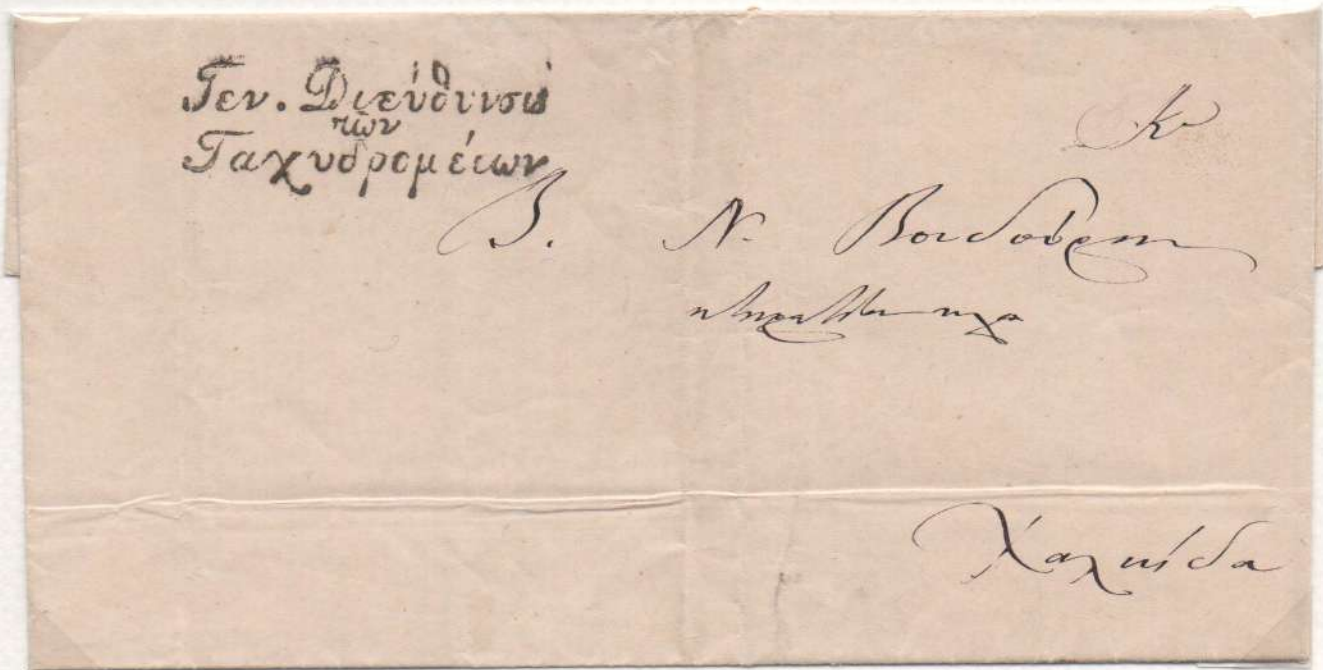 Γεν. Διεύθυνσις
τῶν
Ταχυδρομείων
Κον
Β. Ν. Βουδούρην
Χαλκίδα